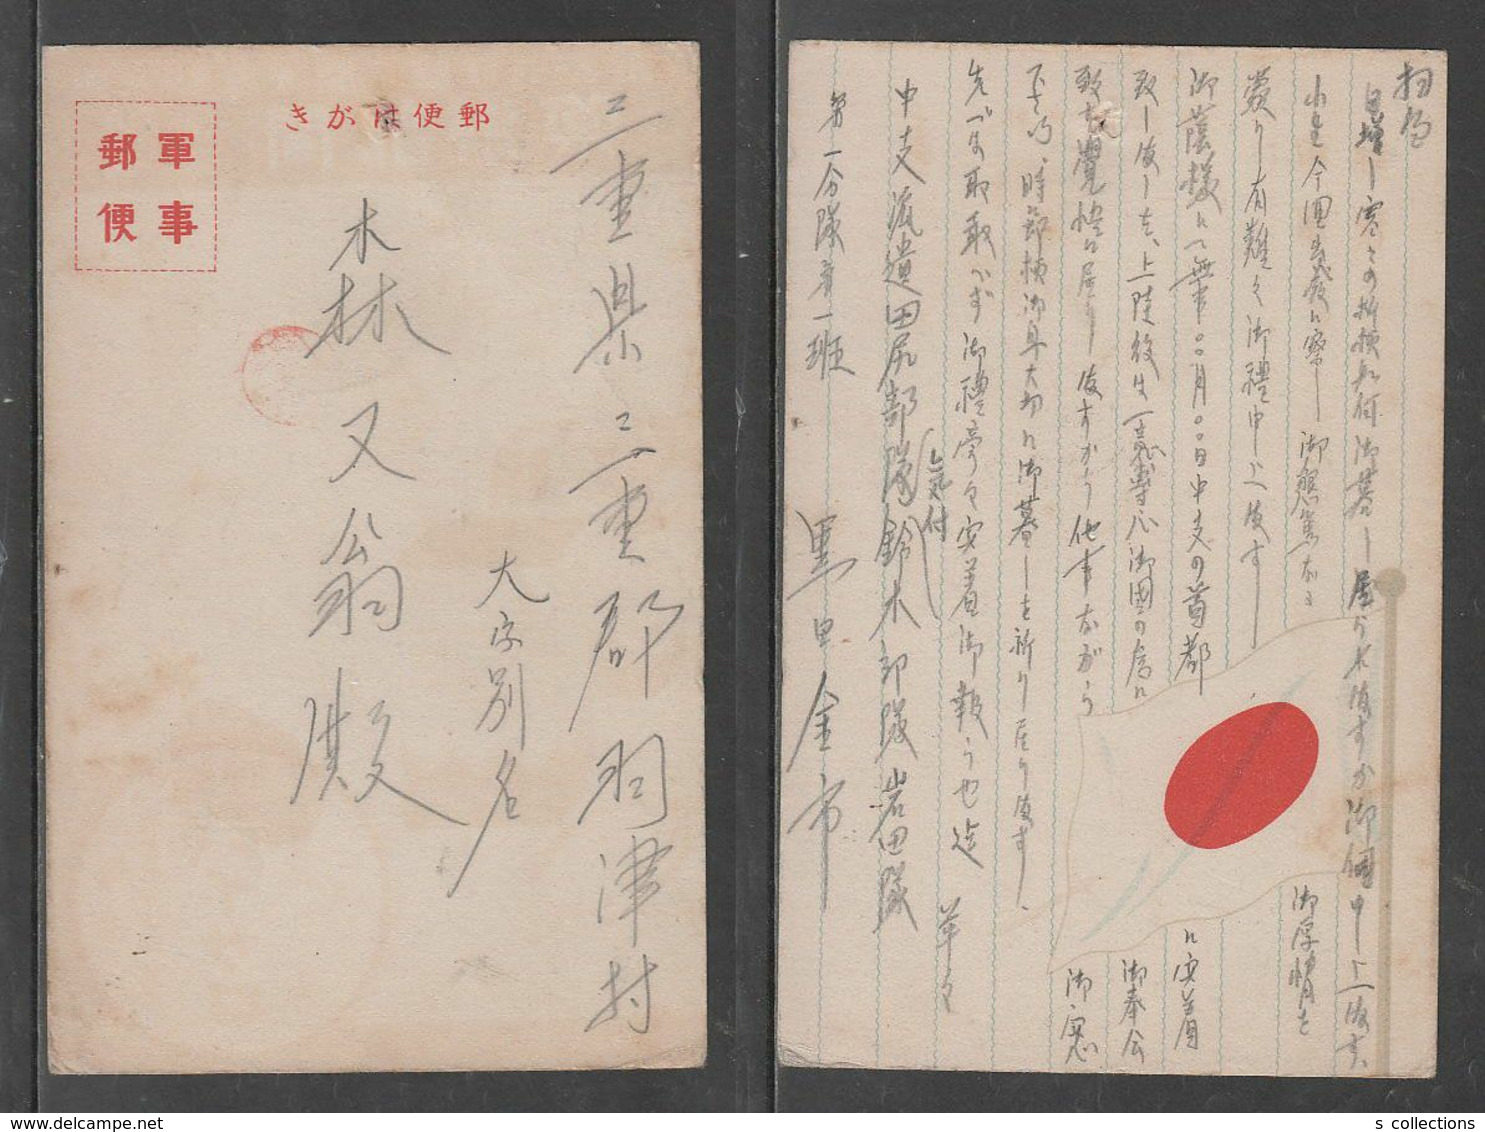 郵便はがき
軍事
郵便
三重県三重郡羽津村
大字別名
森又翁殿
拝啓
日増し寒さの折柄如何御暮し居られ候ますか御伺申し上候す、
小生今回出発に際し御懇篤なる御厚情を
蒙り有難く御禮申し上候す
御蔭様にて無事〇〇月〇〇日中支の首都に安着
致し候しを、上陸後は一意専心御國の為に御奉公
致す覚悟に居り候すから他事ながら御安心
下さい、時節柄御身大切に御暮しを祈り居り候す、
先づは取敢へず御禮旁々安着御報らせ迄 草々
中支派遣田尻部隊気付鈴木部隊岩田隊
第一分隊第一班
黒田金市
s collections